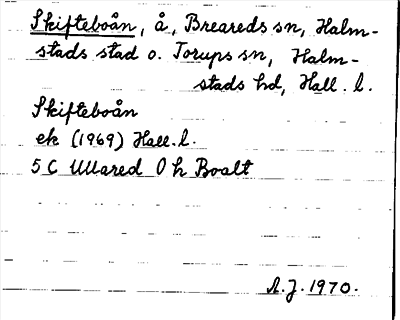 Skifteboån, å, Breareds sn, Halm-
stads stad o. Torups sn, Halm-
stads hd, Hall. l.
Skifteboån
ek (1969) Hall. l.
5 C Ullared 0 h Boalt
A.J. 1970.